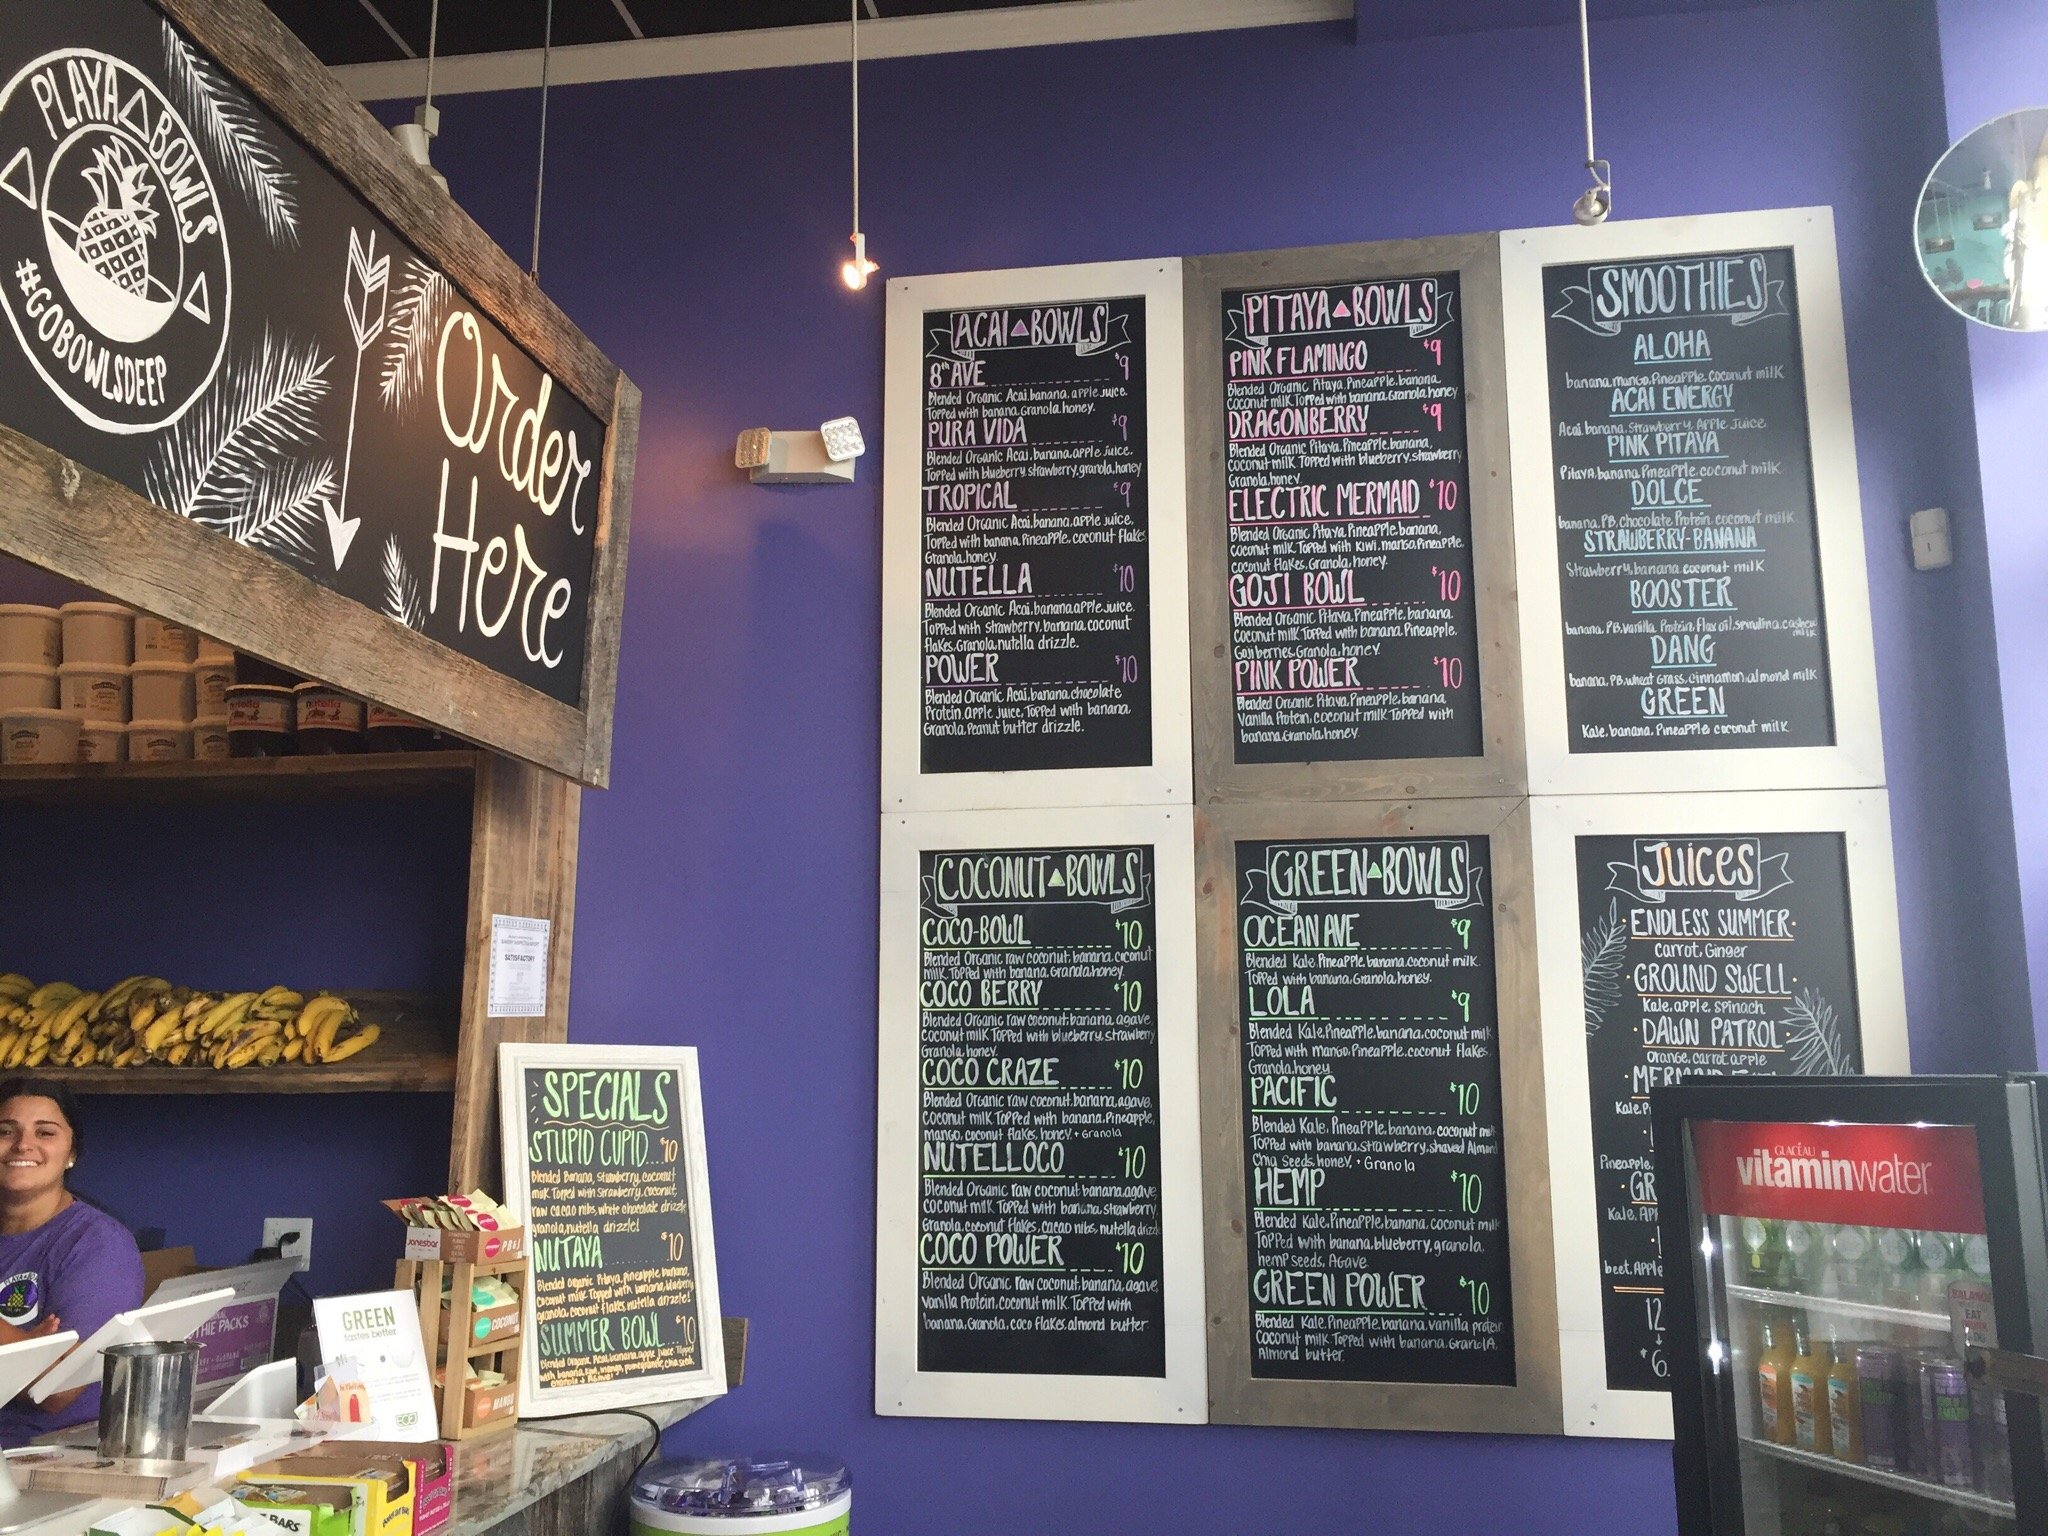 PLAYA BOWLS
#GOBOWLSDEEP
Order
Here
nutella
nutella
SATISFACTORY
SPECIALS
STUPID CUPID....$10
Blended Banana, strawberry, coconut
milk Topped with strawberry, coconut,
raw cacao nibs, white chocolate drizzle
granola, nutella drizzle!
NUTAYA $10
Blended organic Pitaya, pineapple, banana,
Coconut milk Topped with banana, blueberry
granola, coconut flakes, nutella drizzle!
SUMMER BOWL..$10
Blended Organic Acai, banana, apple juice Topped
with banana, kiwi, mango, pomegranate, chia seeds,
granola + Agave!
GREEN
tastes better.
janesbar
PB&J
COCONUT
MANGO
BARS
ACAI BOWLS
8th AVE $9
Blended Organic Acai, banana, apple juice.
Topped with banana, granola, honey.
PURA VIDA $9
Blended Organic Acai, banana, apple juice.
Topped with blueberry, strawberry, granola, honey
TROPICAL $9
Blended Organic Acai, banana, apple juice,
Topped with banana, Pineapple, coconut Flakes
Granola, honey.
NUTELLA $10
Blended Organic Acai, banana, apple juice.
Topped with strawberry, banana, coconut
flakes, Granola, nutella drizzle.
POWER $10
Blended Organic Acai, banana, chocolate
Protein, apple juice, Topped with banana,
Granola, Peanut butter drizzle.
PITAYA BOWLS
PINK FLAMINGO $9
Blended Organic Pitaya, Pineapple, banana,
Coconut milk Topped with banana, Granola, honey
DRAGONBERRY $9
Blended Organic Pitaya, Pineapple, banana,
coconut milk. Topped with blueberry, strawberry
Granola, honey.
ELECTRIC MERMAID $10
Blended Organic Pitaya, Pineapple, banana,
coconut milk. Topped with kiwi, mango, Pineapple,
coconut flakes, Granola, honey.
GOJI BOWL $10
Blended Organic Pitaya, Pineapple, banana.
Coconut milk Topped with banana, Pineapple,
Goji berries, Granola, honey.
PINK POWER $10
Blended Organic Pitaya, Pineapple, banana
Vanilla Protein, coconut milk Topped with
banana, Granola, honey.
SMOOTHIES
ALOHA
banana, mango, Pineapple, coconut milk
ACAI ENERGY
Acai, banana, Strawberry, Apple Juice
PINK PITAYA
Pitaya, banana, Pineapple, coconut milk
DOLCE
banana, PB, chocolate Protein, coconut milk
STRAWBERRY-BANANA
Strawberry, banana, coconut milk
BOOSTER
banana, PB, vanilla Protein, Flax oil, spirulina, cashew
milk
DANG
banana, PB, wheat Grass, cinnamon, almond milk
GREEN
Kale, banana, Pineapple, coconut milk
COCONUT BOWLS
COCO-BOWL $10
Blended Organic raw coconut, banana, coconut
milk. Topped with banana, Granola, honey.
COCO BERRY $10
Blended Organic raw coconut, banana, agave,
Coconut milk Topped with blueberry, strawberry
Granola, honey.
COCO CRAZE $10
Blended Organic raw coconut, banana, agave,
Coconut milk Topped with banana, Pineapple,
mango, coconut flakes, honey. + Granola
NUTELLOCO $10
Blended Organic raw coconut, banana, agave,
Coconut milk Topped with banana, strawberry,
Granola, coconut flakes, cacao nibs, nutella drizzle
COCO POWER $10
Blended Organic raw coconut, banana, agave,
vanilla Protein, coconut milk. Topped with
banana, Granola, coco flakes, almond butter.
GREEN BOWLS
OCEAN AVE $9
Blended Kale, Pineapple, banana, coconut milk.
Topped with banana, Granola, honey.
LOLA $9
Blended Kale, Pineapple, banana, coconut milk
Topped with mango, Pineapple, coconut Flakes,
Granola, honey.
PACIFIC $10
Blended Kale, Pineapple, banana, coconut milk
Topped with banana, strawberry, shaved Almond
Chia seeds, honey, + Granola
HEMP $10
Blended Kale, Pineapple, banana, coconut milk
Topped with banana, blueberry, granola,
hemp seeds, Agave.
GREEN POWER $10
Blended Kale, Pineapple, banana, vanilla protein
Coconut milk. Topped with banana, Granola,
Almond butter.
JUICES
ENDLESS SUMMER
carrot, Ginger
GROUND SWELL
Kale, apple, spinach
DAWN PATROL
Orange, carrot, apple
Kale, P
Pineapple,
GR
Kale, AP
beet, Apple
12
GLACÉAU
vitaminwater